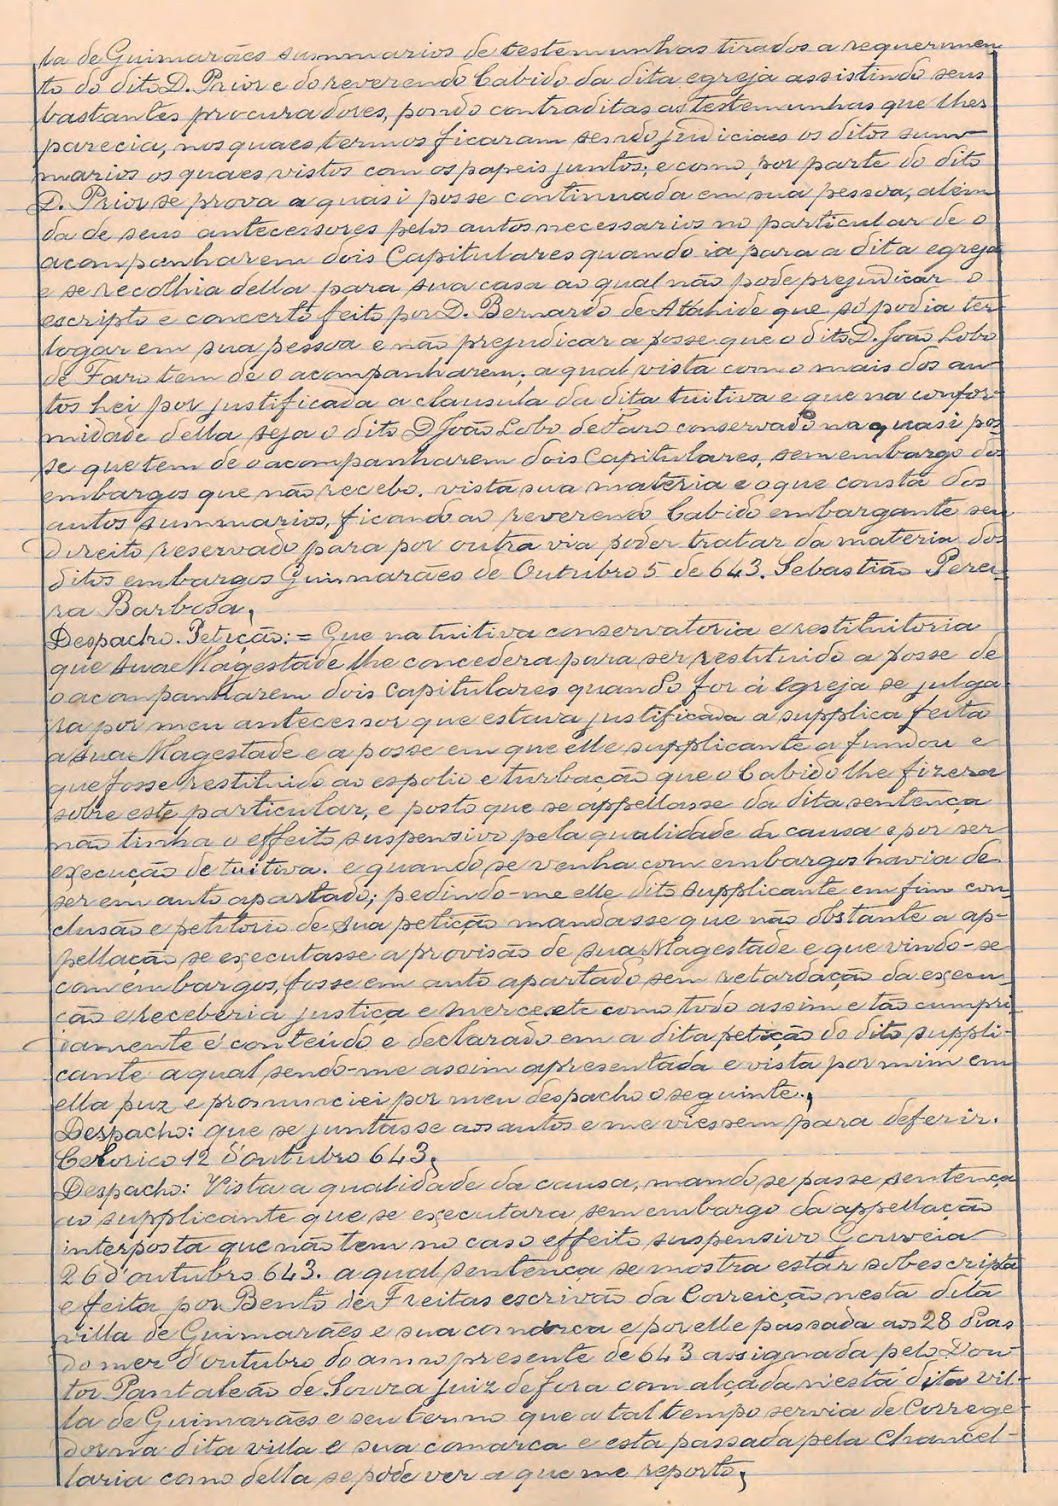 la de Guimarães summarios de testemunhas tirados a requerimen
to do dito D. Prior e do reverendo Cabido da dita egreja assistindo seus
bastantes procuradores, pondo contraditas as testemunhas que lhes
parecia, nos quaes termos ficaram sendo judiciaes os ditos sum-
marios os quaes vistos com os papeis juntos; e como, por parte do dito
D. Prior se prova a quasi posse continuada em sua pessoa, alem
da de seus antecessores pelos autos necessarios no particular de o
acompanharem dois Capitulares quando ia para a dita egreja
e se recolhia della para sua casa ao qual não pode prejudicar o
escripto e concerto feito por D. Bernardo de Athaide que só podia ter
logar em sua pessoa e não prejudicar a posse que o dito D. João Lobo
de Faro tem de o acompanharem; a qual vista com o mais dos au-
tos hei por justificada a clausula da dita tuitiva e que na confor-
midade della seja o dito D João Lobo de Faro conservado na quasi pos-
se que tem de o acompanharem dois Capitulares, sem embargo dos
embargos que não recebo. vista sua materia e o que consta dos
autos summarios, ficando ao reverendo Cabido embargante seu
direito reservado para por outra via poder tratar da materia dos
ditos embargos Guimarães de Outubro 5 de 643. Sebastião Perei-
ra Barbosa;
Despacho. Petição: = Que na tuitiva conservatoria e restituitoria
que sua Magestade lhe concedera para ser restituido a posse de
o acompanharem dois capitulares quando for á Egreja se julga-
ra por meu antecessor que estava justificada a supplica feita
a sua Magestade e a posse em que elle supplicante a fundou e
que fosse restituido ao espolio e turbação que o Cabido lhe fizera
sobre este particular, e posto que se appellasse da dita sentença
não tinha o effeito suspensivo pela qualidade da causa e por ser
execução de tuitiva. e quando se venha com embargos havia de
ser em auto apartado; pedindo-me elle dito supplicante em fim con-
clusão e petitorio de sua petição mandasse que não obstante a ap-
pellação se executasse a provisão de sua Magestade e que vindo-se
com embargos, fosse em auto apartado sem retardação da execu-
ção e receberia justiça e merce etc como todo assim e tão cumpri-
damente é conteúdo e declarado em a dita petição do dito suppli-
cante a qual sendo-me assim apresentada e vista por mim em
ella puz e pronunciei por meu despacho o seguinte;
Despacho: que se juntasse aos autos e me viessem para deferir.
Celorico 12 d'outubro 643;
Despacho: Vista a qualidade da causa, mando se passe sentença
ao supplicante que se executara sem embargo da appellação
interposta que não tem no caso effeito suspensivo Gouveia
26 d'outubro 643. a qual sentença se mostra estar sobescripta
e feita por Bento de Freitas escrivão da Correição nesta dita
villa de Guimarães e sua comarca e por elle passada aos 28 dias
do mez d'outubro do anno presente de 643 assignada pelo Dou-
tor Pantaleão de Souza juiz de fora com alçada n'esta dita vil-
la de Guimarães e seu termo que a tal tempo servia de Correge-
dor na dita villa e sua comarca e esta passada pela Chancel-
laria como della se póde ver a que me reporto;